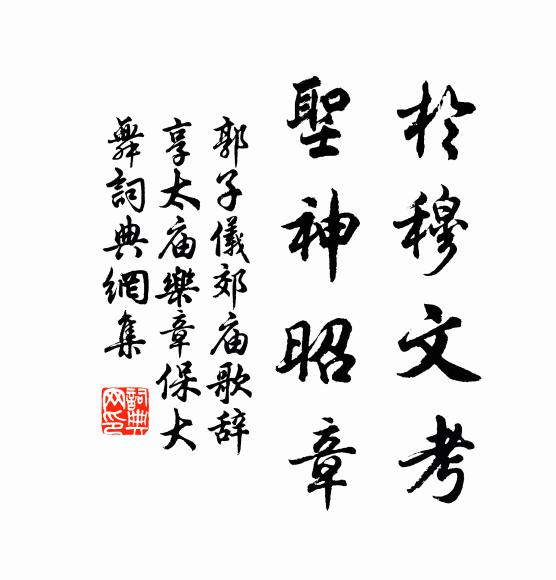 於穆文考
聖神昭章
郭子儀郊庙歌辞
享太庙樂章保大
舞詞典網集
詞典
网印